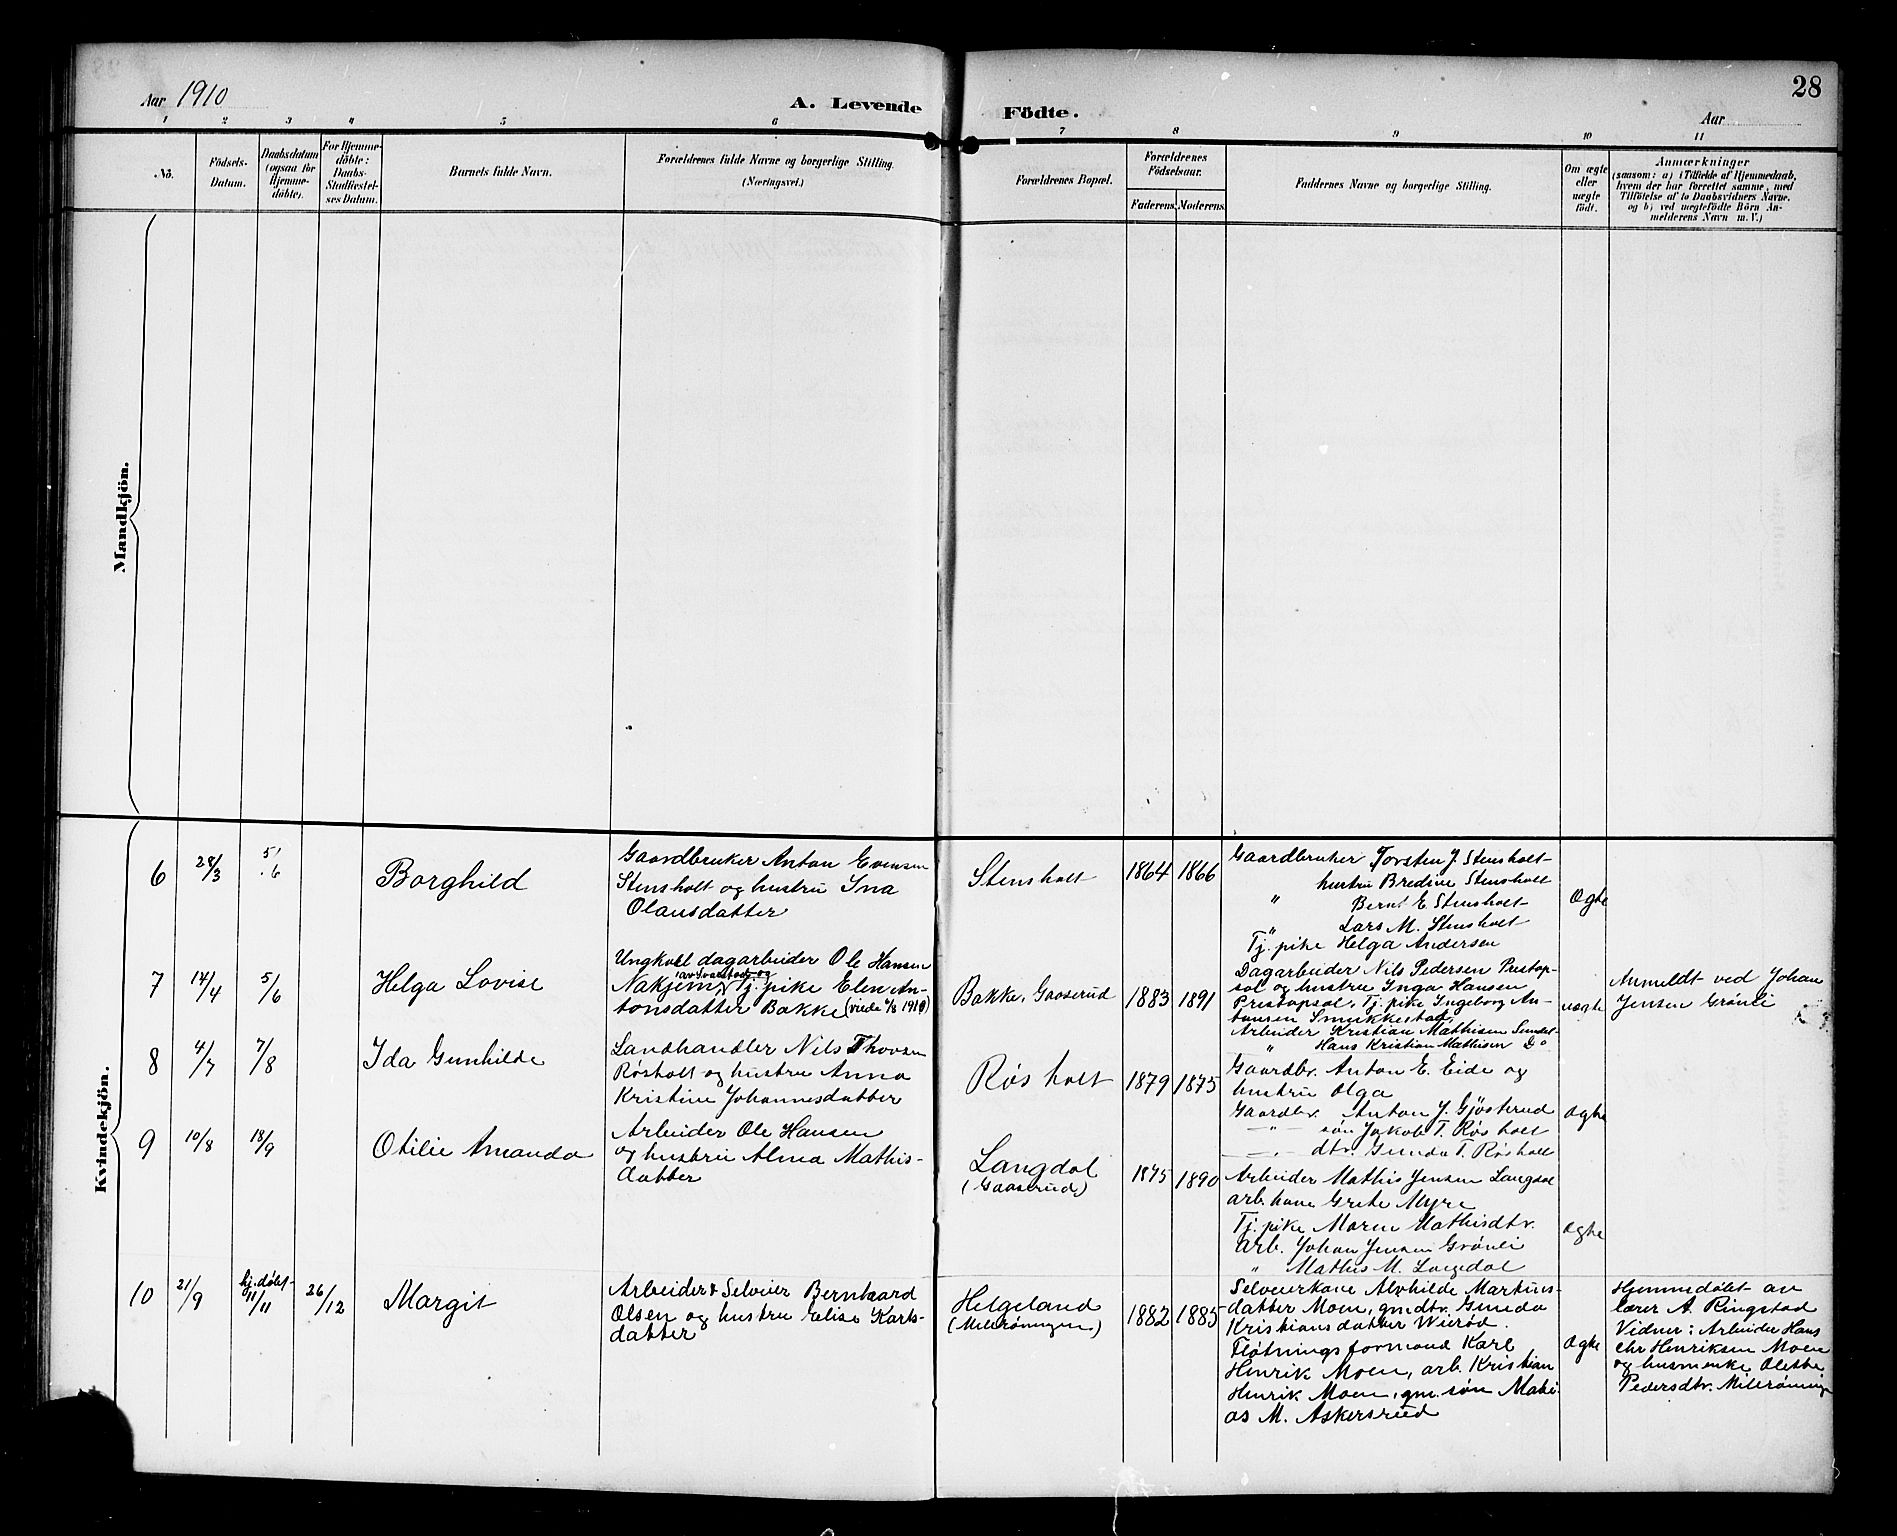 28
Aar 1910
A. Levende Födte.
Aar
1 2 3 4 5 6 7 8 9 10 11
Nö.
Födsels-
Datum.
Daabsdatum
(ogsaa for
Hjemme-
döbte).
For Hjemme-
döbte:
Daabs-
Stadfæstel-
ses Datum.
Barnets fulde Navn.
Forældrenes fulde Navne og borgerlige Stilling.
(Næringsvei.)
Forældrenes Bopæl.
Forældrenes
Födselsaar.
Faderens. Moderens.
Faddernes Navne og borgerlige Stilling.
Om ægte
eller
uægte
født.
Anmærkninger
(saasom: a) i Tilfælde af Hjemmedaab,
hvem der har forrettet samme, med
Tilföielse af to Daabsvidners Navne.
og b) ved uægtefödte Börn An-
melderens Navn m. V.)
Mandkjön.
Kvindekjön.
6
28/3
5/6
Borghild
Gaardbruker Anton Evensen
Stensholt og hustru Ina
Olausdatter
Stensholt
1864 1866
Gaardbruker Torsten J. Stensholt
hustru Bredine Stensholt
" Bernt E. Stensholt
" Lars M. Stensholt
Tj. pike Helga Andersen
Ægte
7
14/4
5/6
Helga Lovise
Ungkarl dagarbeider Ole Hansen
Nakjem av Svarstad og Tj. pike Elen An-
tonsdatter Bakke (viede 6/8 1910)
Bakke, Gaaserud
1883 1891
Dagarbeider Nils Pedersen Prestap-
sol og hustru Inga Hansen
Prestapsol, Tj. pike Ingeborg An-
tonsen Smukkestad,
Arbeider Kristian Mathisen
" Hans Kristian Mathisen Do
uægte
Anmeldt ved Johan
Jensen Grönli
8
4/7
7/8
Ida Gunhilde
Landhandler Nils Thovsen
Røsholt og hustru Anna
Kristine Johannesdatter
Røsholt
1879 1875
Gaardbr. Anton E. Eide og
hustru Olga
Gaardbr. Anton J. Gjøsterud
—"— søn Jakob T. Røsholt
—"— dtr. Gunda T. Røsholt
Ægte
9
10/8
18/9
Otilie Amanda
Arbeider Ole Hansen
og hustru Alma Mathis-
datter
Langdal
(Gaaserud)
1875 1890
Arbeider Mathis Jensen Langdal
arb. kone Grete Myre
Tj. pike Maren Mathisdtr.
Arb. Johan Jensen Grönli
" Mathis M. Langdal
Ægte
10
21/9
hj. døbt
11/11
26/12
Margit
Arbeider & Selveier Bernhard
Olsen og hustru Elise Karls-
datter
Helgeland
(Mellrøningen)
1882 1885
Selveierkone Alvhilde Markus-
datter Moen, gmdtr. Gunda
Kristiansdatter Wierød.
Fløtningsformand Karl
Henrik Moen, arb. Kristian
Henrik Moen, gm. søn Mathi-
as M. Askersrud
Ægte
Hjemmedøbt av
lærer A. Ringstad
Vidner: Arbeider Hans
Chr Henriksen Moen
og husmenke Olette
Pedersdtr. Mellrøning